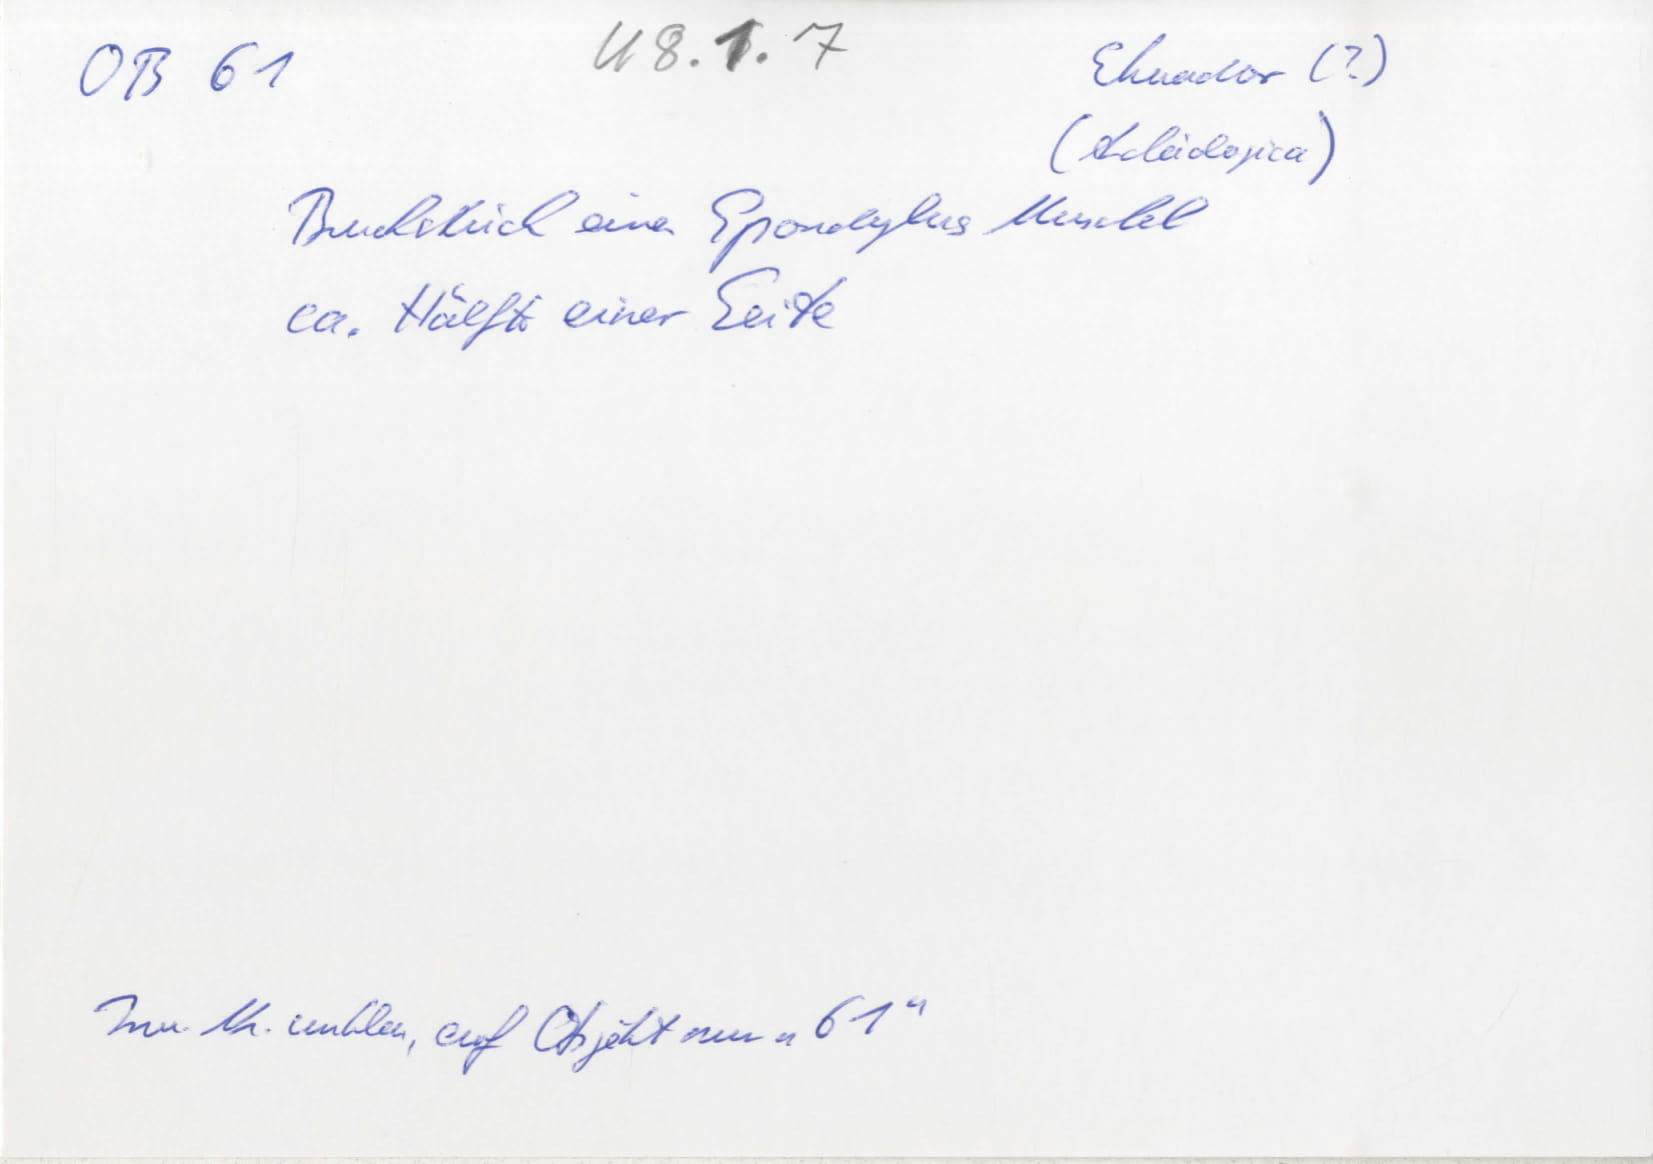 OB 61
U 8.1.7
Ekuador (?)
(Archäologica)
Bruchstück einer Spondylus Muschel
ca. Hälfte einer Seite
Inv. Nr. unklar, auf Objekt nur „61“